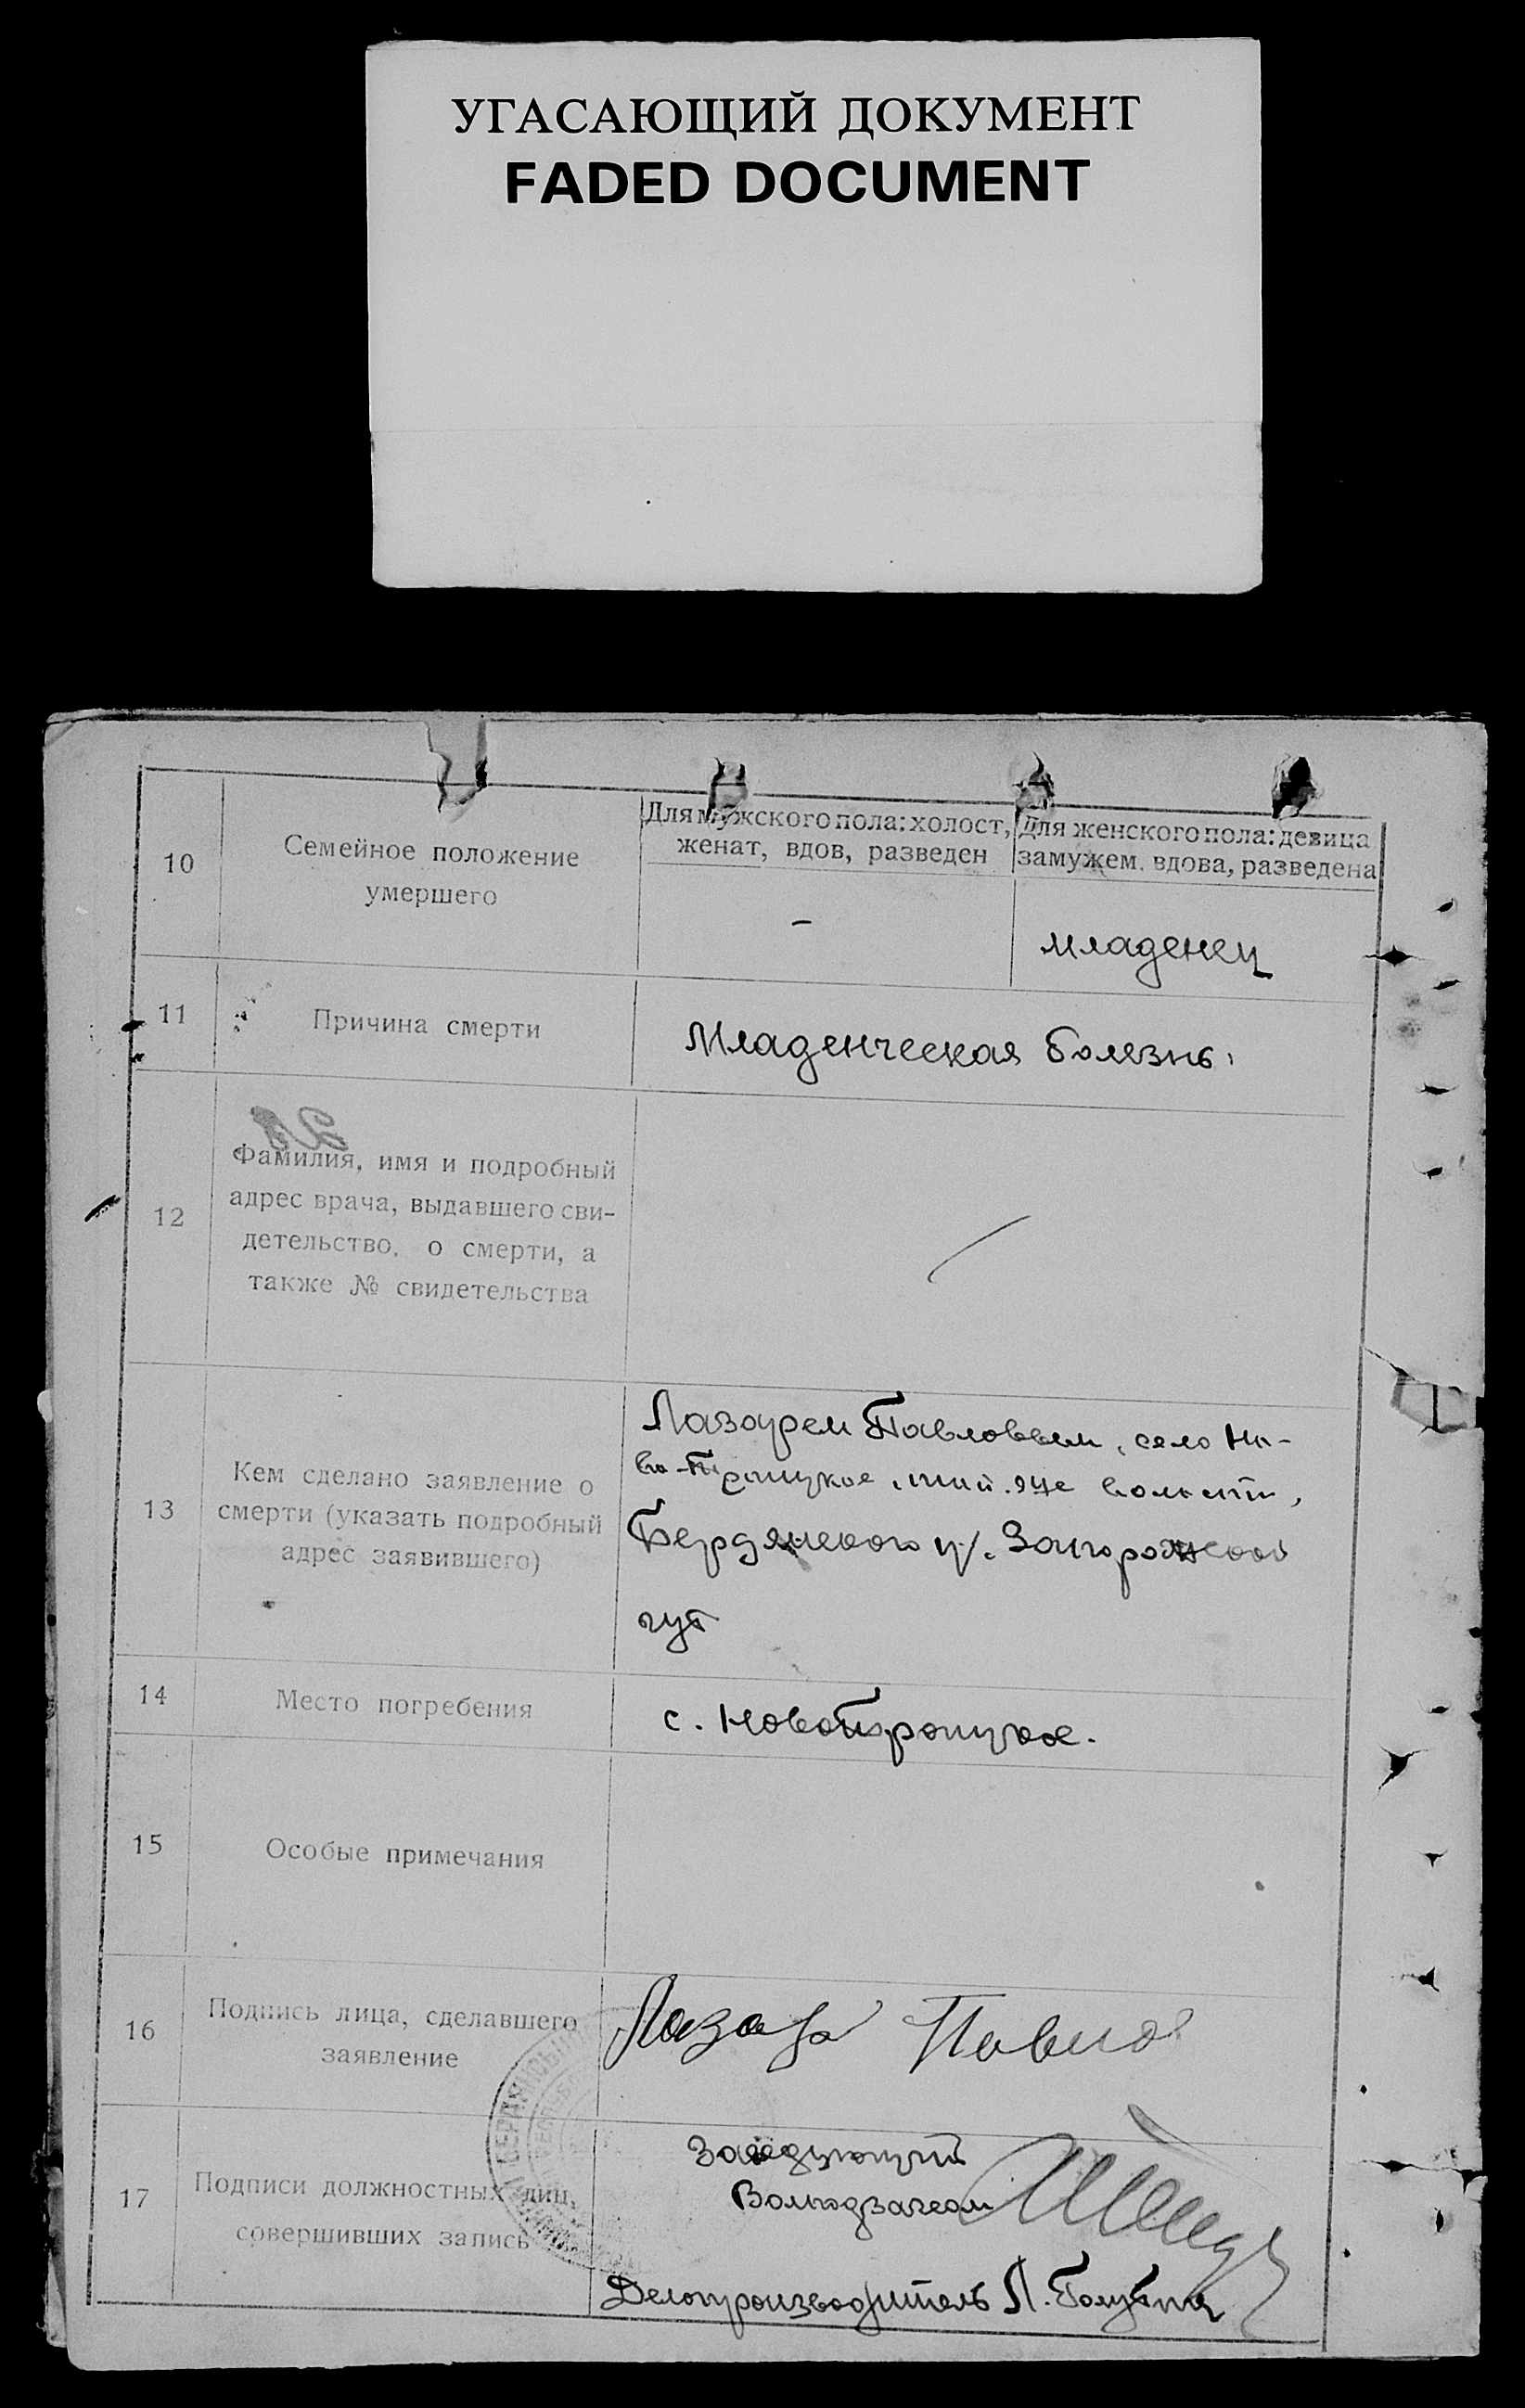 УГАСАЮЩИЙ ДОКУМЕНТ
FADED DOCUMENT
10
Семейное положение
умершего
Для мужского пола: холост,
женат, вдов, разведен
Для женского пола: девица
замужем, вдова, разведена
-
младенец
11
Причина смерти
Младенческая болезнь.
12
Фамилия, имя и подробный
адрес врача, выдавшего сви-
детельство, о смерти, а
также № свидетельства
13
Кем сделано заявление о
смерти (указать подробный
адрес заявившего)
Лазарем Павловым, село Но-
во-Троицкое, той же волости,
Бердянского у/. Запорожской
губ
14
Место погребения
с. Новотроицкое.
15
Особые примечания
16
Подпись лица, сделавшего
заявление
Лазарь Павлов
17
Подписи должностных лиц,
совершивших запись
Заведующий
Волподзагсом
Делопроизводитель Л.